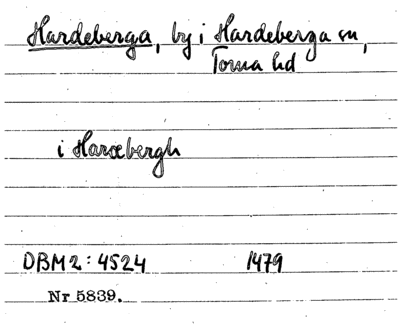 Hardeberga, by i Hardeberga sn,
Torna hd
i Haræbergh
DBM 2: 4524 1479
Nr 5839.